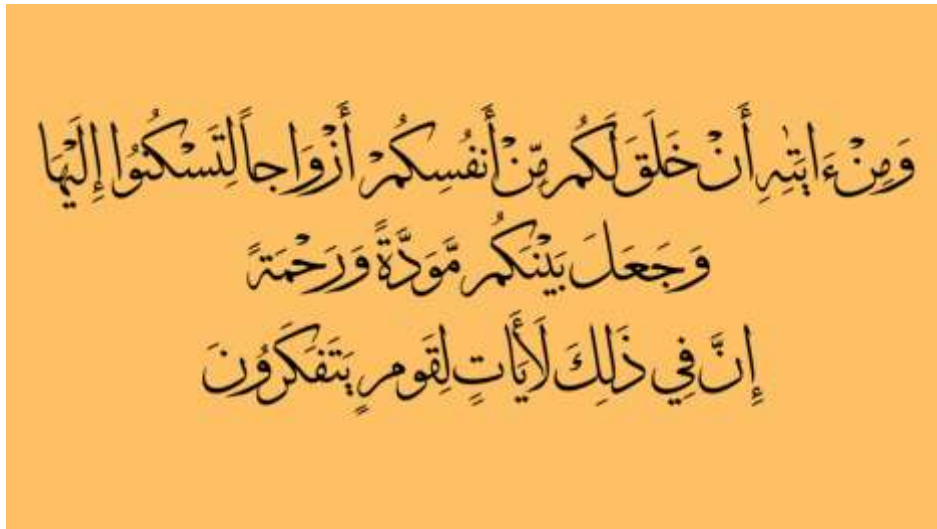 وَمِنْ ءَايَٰتِهِ أَنْ خَلَقَ لَكُم مِّنْ أَنفُسِكُمْ أَزْوَاجاً لِتَسْكُنُوا إِلَيْهَا
وَجَعَلَ بَيْنَكُم مَّوَدَّةً وَرَحْمَةً
إِنَّ فِي ذَلِكَ لَأَيَاتٍ لِقَومٍ يَتَفَكَرُونَ